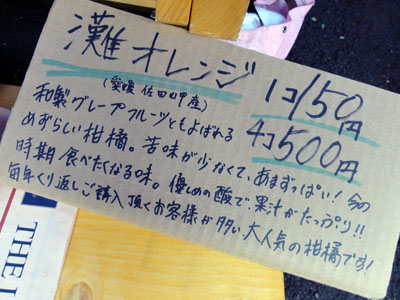 灘オレンジ
(愛媛 佐田岬産)
1コ150円
4コ500円
和製グレープフルーツともよばれる
めずらしい柑橘。苦味が少なくて、あまずっぱい!今の
時期食べたくなる味。優しめの酸で、果汁がたっぷり!!
毎年くり返しご購入頂くお客様が多い大人気の柑橘です!
THE